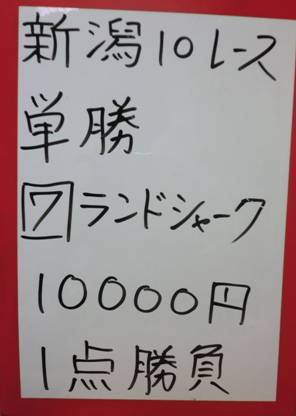 新潟10レース
単勝
7ランドシャーク
10000円
1点勝負